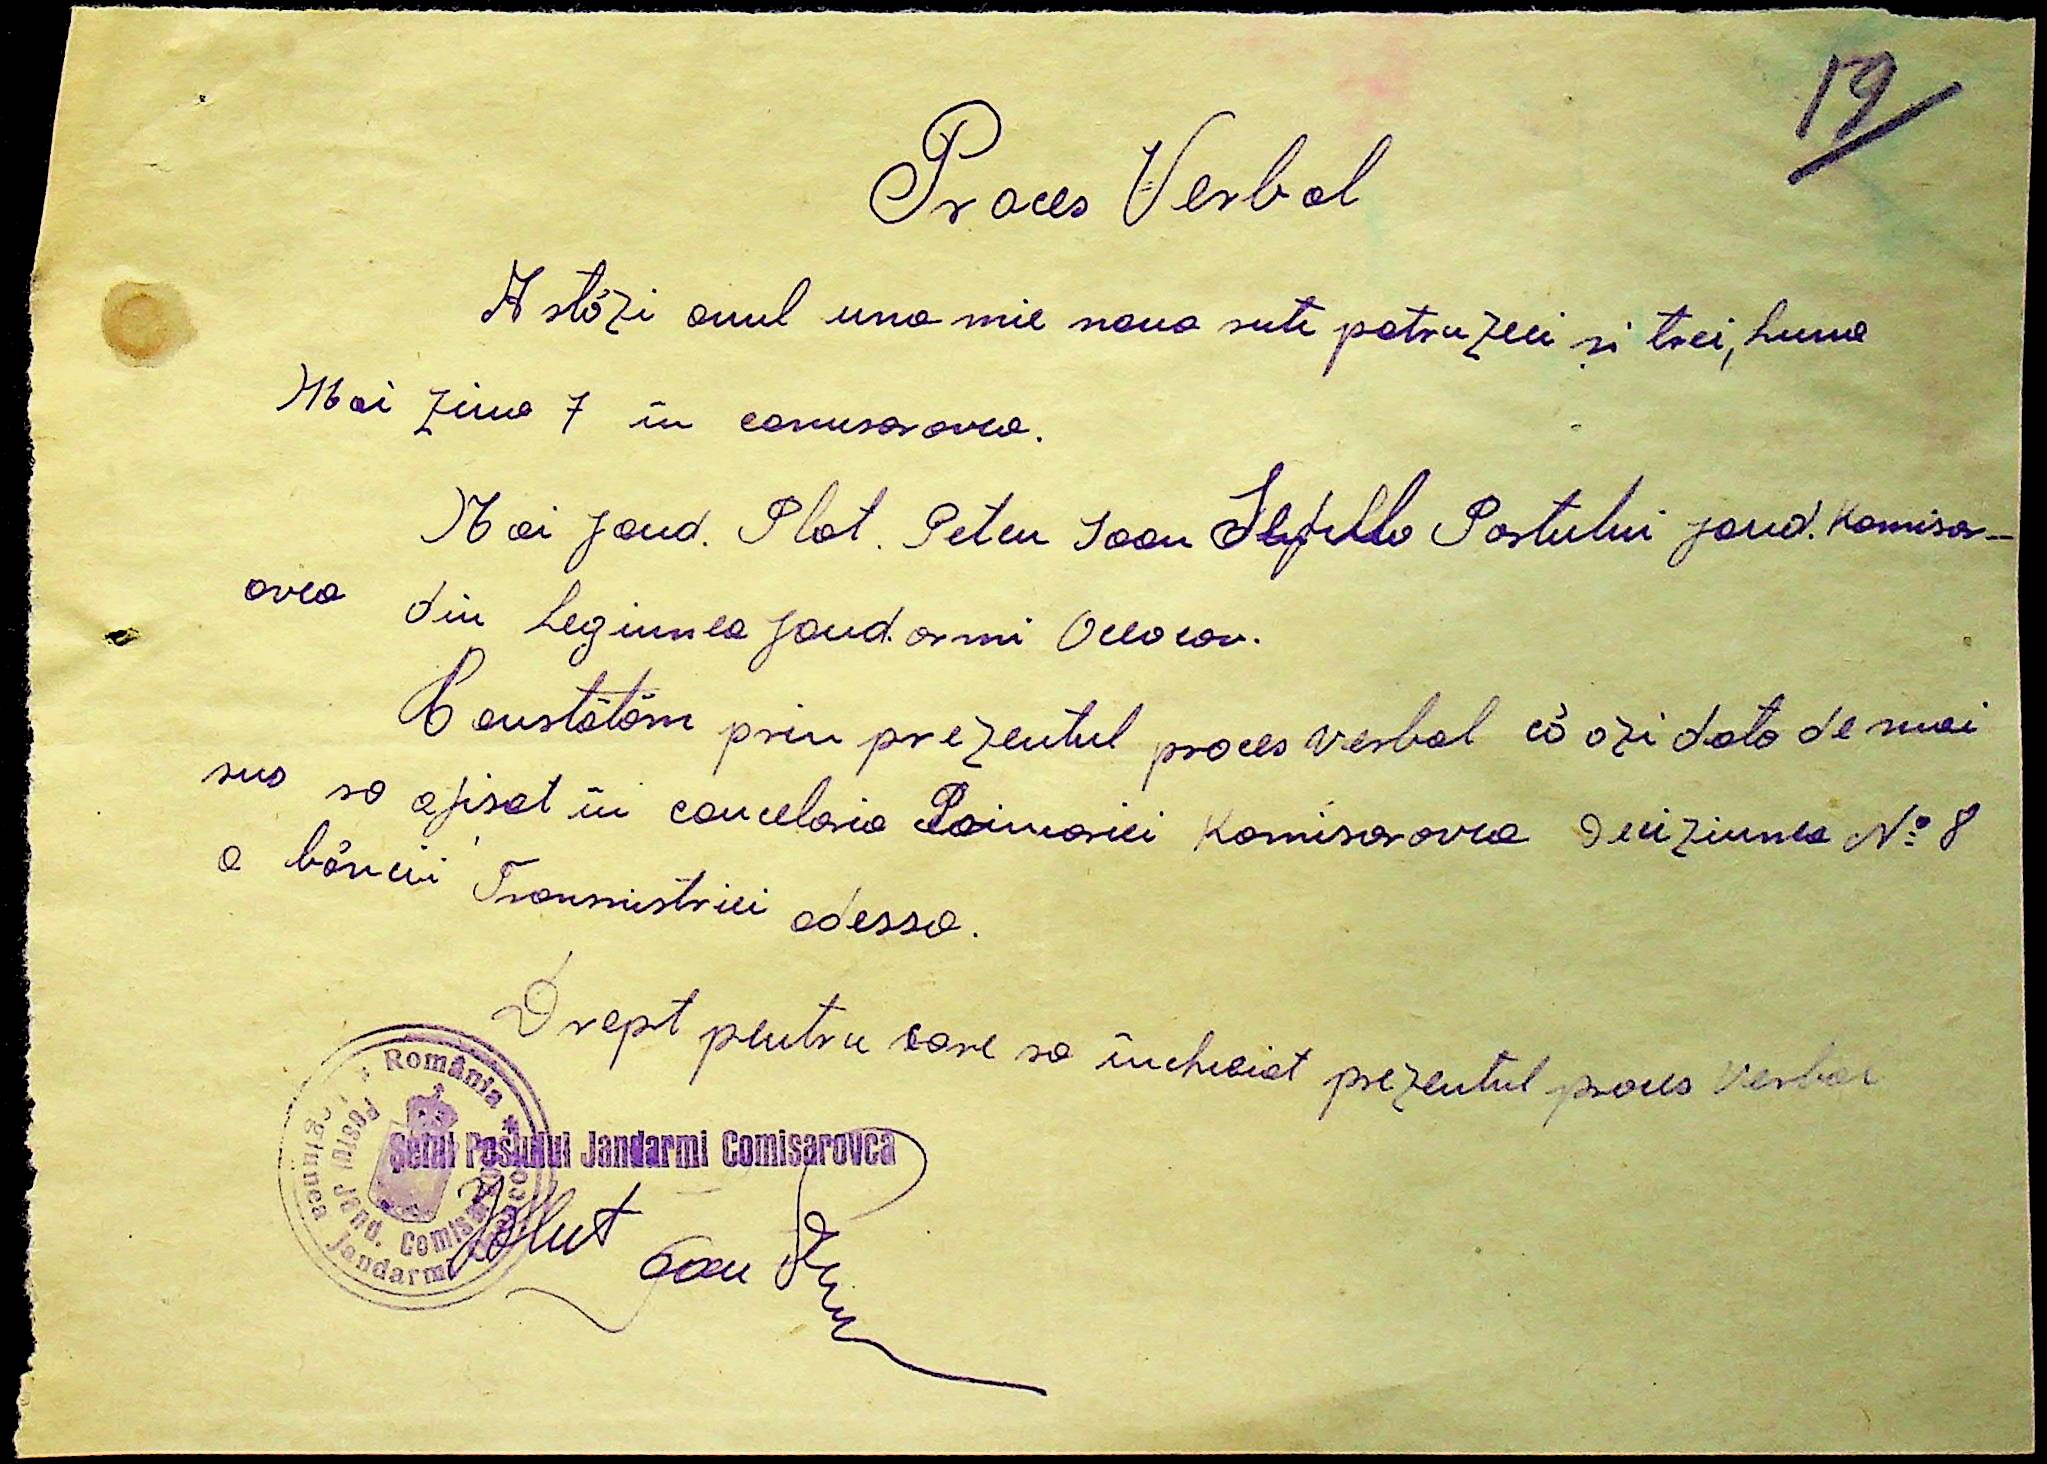 19
Proces Verbal
Astăzi anul una mie noua sute patruzeci și trei, Luna
Mai ziua 7 în comisarovca.
Noi Jand. Plot. Petcu Ioan Șeful Postului jand. Komisar-
ovca din Legiunea Jandarmi Oceacov.
Constatăm prin prezentul proces verbal că azi data de mai
sus sa afisat în cancelaria Primariei Komisarovca Deciziunea No 8
a băncii Transnistriei odessa.
Drept pentru care sa încheiat prezentul proces verbal
România *
Legiunea Jandarmi
Postul Jand. Comisarovca
Șeful Postului Jandarmi Comisarovca
Plut Ioan